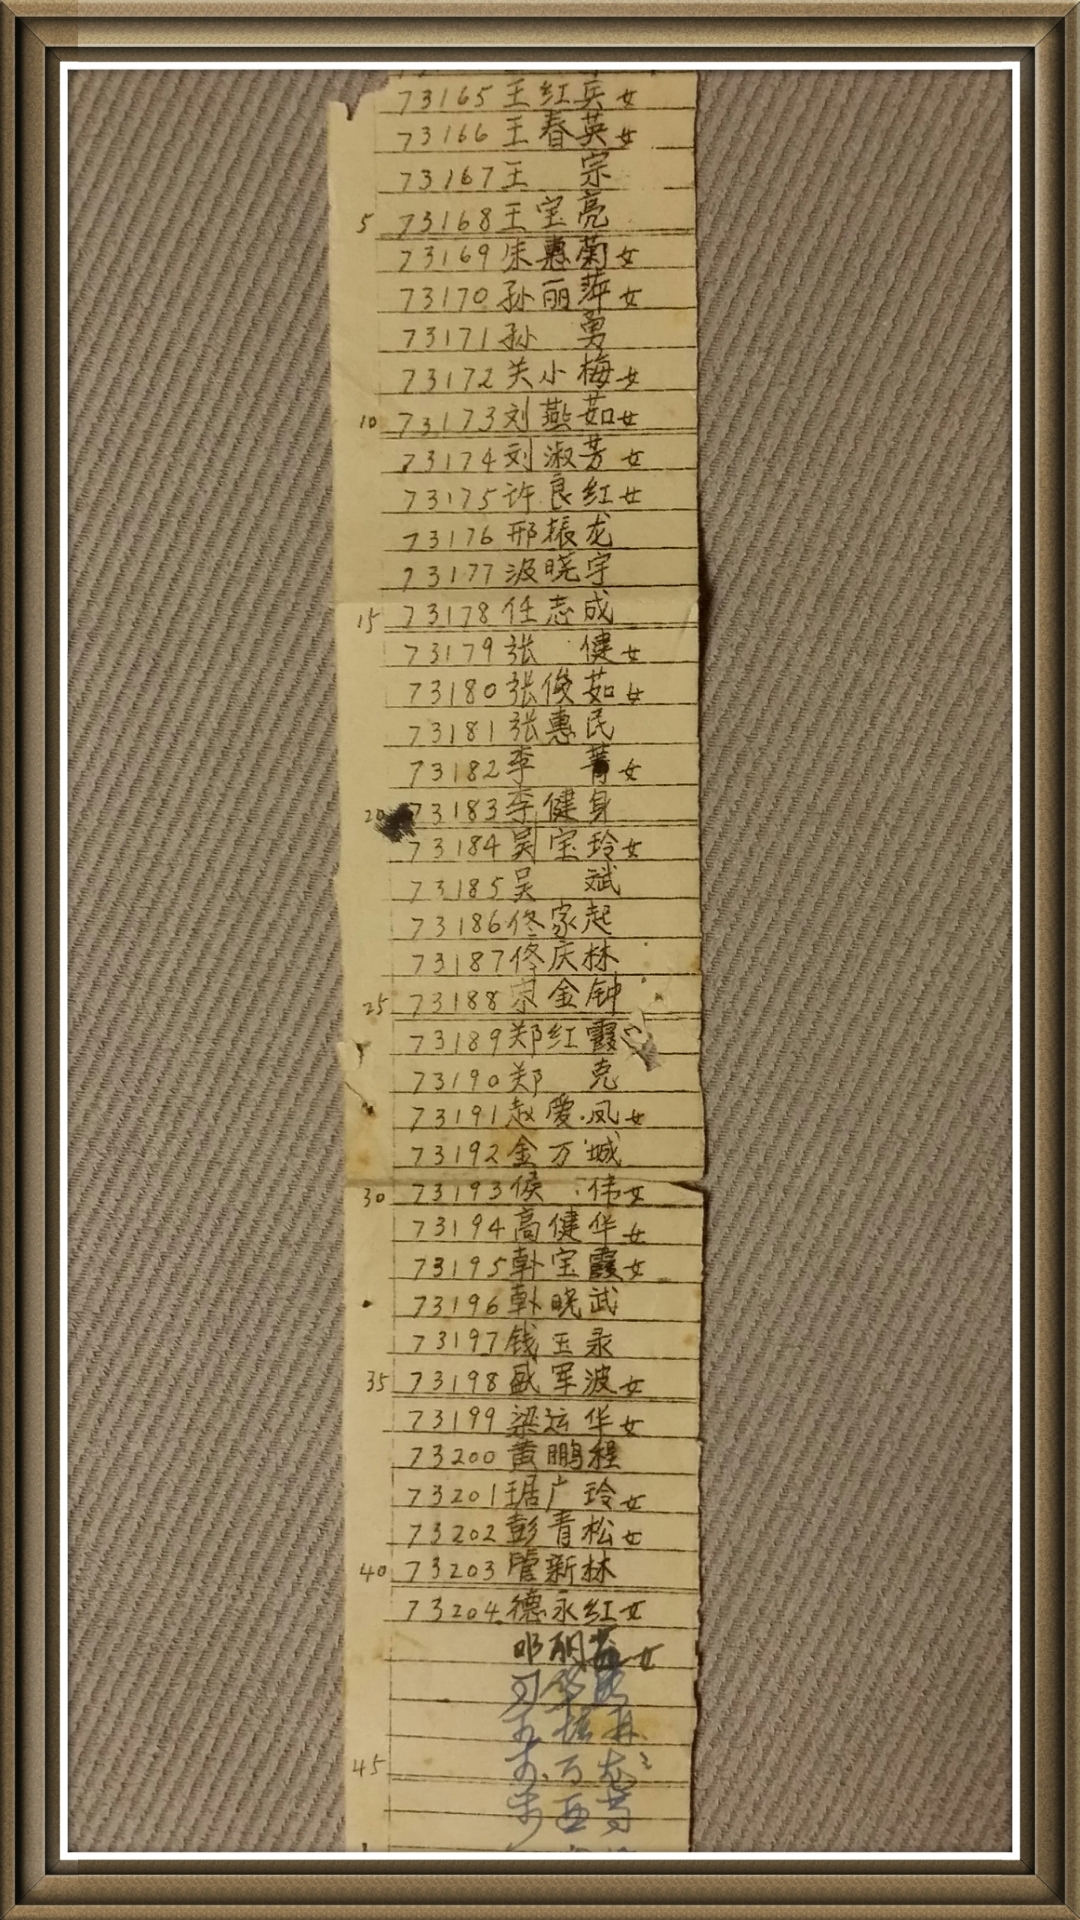 73165 王红兵 女
73166 王春英 女
73167 王 宗
5 73168 王宝亮
73169 朱惠菊 女
73170 孙丽萍 女
73171 孙 勇
73172 关小梅 女
10 73173 刘燕茹 女
73174 刘淑芳 女
73175 许良红 女
73176 邢振龙
73177 汲晓宇
15 73178 任志成
73179 张 健 女
73180 张俊茹 女
73181 张惠民
73182 李 菁 女
20 73183 李健身
73184 吴宝玲 女
73185 吴 斌
73186 佟家起
73187 佟庆林
25 73188 宗金钟
73189 郑红霞
73190 郑 克
73191 赵爱凤 女
73192 金万城
30 73193 侯 伟 女
73194 高健华 女
73195 韩宝霞 女
73196 韩晓武
73197 钱玉录
35 73198 盛军波 女
73199 梁运华 女
73200 黄鹏程
73201 琚广玲 女
73202 彭青松 女
40 73203 管新林
73204 德永红 女
邓丽 女
45 万龙